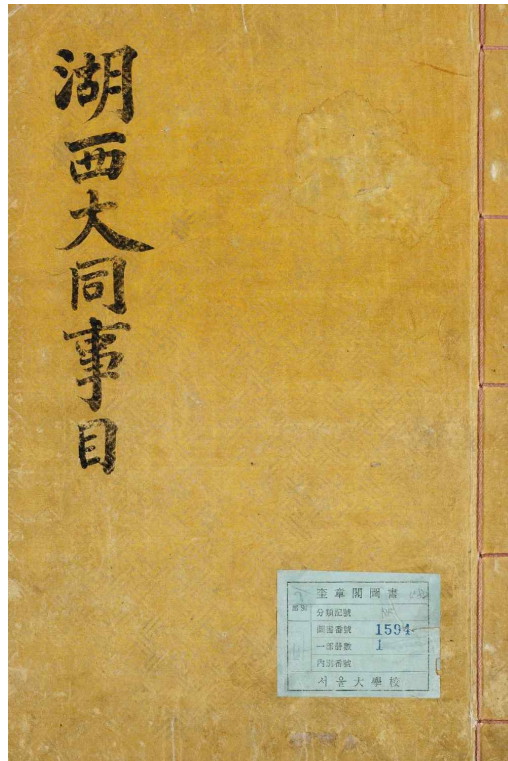 湖西大同事目
奎章閣圖書
分類記號
圖書番號 1594
一部冊數 1
內別番號
서울大學校